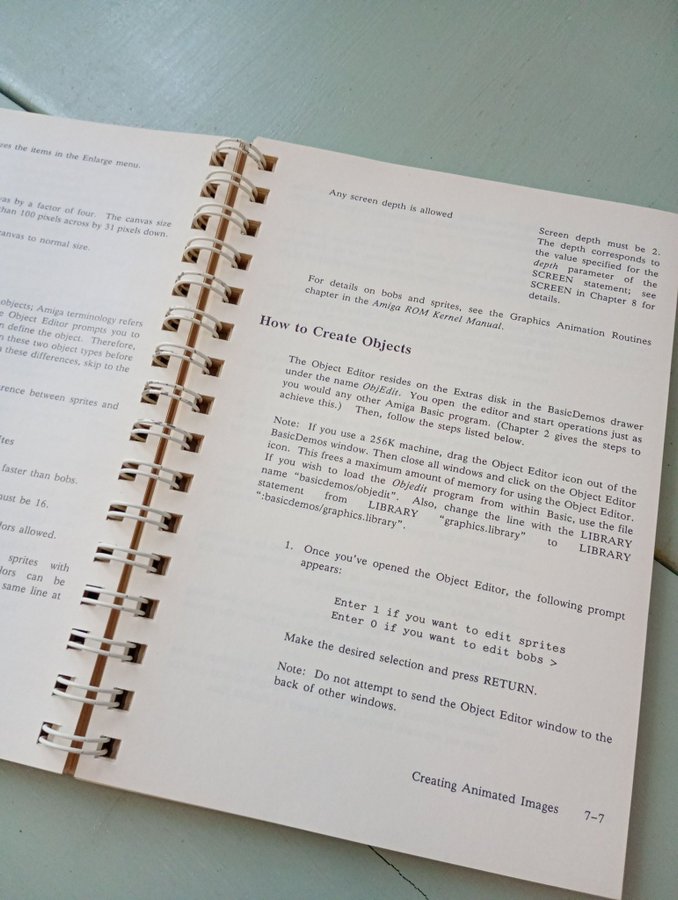 zes the items in the Enlarge menu.
vas by a factor of four. The canvas size
than 100 pixels across by 31 pixels down.
canvas to normal size.
objects; Amiga terminology refers
e Object Editor prompts you to
n define the object. Therefore,
n these two object types before
n these differences, skip to the
erence between sprites and
ites
faster than bobs.
must be 16.
lors allowed.
sprites with
lors can be
same line at
Any screen depth is allowed
Screen depth must be 2.
The depth corresponds to
the value specified for the
depth parameter of the
SCREEN statement; see
SCREEN in Chapter 8 for
details.
For details on bobs and sprites, see the Graphics Animation Routines
chapter in the Amiga ROM Kernel Manual.
How to Create Objects
The Object Editor resides on the Extras disk in the BasicDemos drawer
under the name ObjEdit. You open the editor and start operations just as
you would any other Amiga Basic program. (Chapter 2 gives the steps to
achieve this.) Then, follow the steps listed below.
Note: If you use a 256K machine, drag the Object Editor icon out of the
BasicDemos window. Then close all windows and click on the Object Editor
icon. This frees a maximum amount of memory for using the Object Editor.
If you wish to load the Objedit program from within Basic, use the file
name "basicdemos/objedit". Also, change the line with the LIBRARY
statement from LIBRARY "graphics.library" to LIBRARY
":basicdemos/graphics.library".
1. Once you've opened the Object Editor, the following prompt
appears:
Enter 1 if you want to edit sprites
Enter 0 if you want to edit bobs >
Make the desired selection and press RETURN.
Note: Do not attempt to send the Object Editor window to the
back of other windows.
Creating Animated Images 7-7